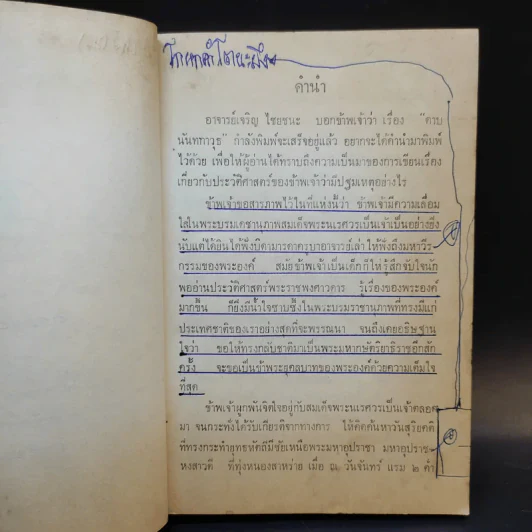 คำนำ
อาจารย์เจริญ ไชยชนะ บอกข้าพเจ้าว่า เรื่อง "ดาบ
นันทกาวุธ" กำลังพิมพ์จะเสร็จอยู่แล้ว อยากจะได้คำนำมาพิมพ์
ไว้ด้วย เพื่อให้ผู้อ่านได้ทราบถึงความเป็นมาของการเขียนเรื่อง
เกี่ยวกับประวัติศาสตร์ของข้าพเจ้าว่ามีปฐมเหตุอย่างไร
ข้าพเจ้าขอสารภาพไว้ในที่แห่งนี้ว่า ข้าพเจ้ามีความเลื่อม
ใสในพระบรมเดชานุภาพสมเด็จพระนเรศวรเป็นเจ้าเป็นอย่างยิ่ง
นับแต่ได้ยินได้ฟังบิดามารดาครูบาอาจารย์เล่า ให้ฟังถึงมหาวีร-
กรรมของพระองค์ สมัยข้าพเจ้าเป็นเด็กก็ให้รู้สึกจับใจนัก
พออ่านประวัติศาสตร์พระราชพงศาวดาร รู้เรื่องของพระองค์
มากขึ้น ก็ยิ่งมีน้ำใจซาบซึ้งในพระบรมราชานุภาพที่ทรงมีแก่
ประเทศชาติของเราอย่างสุดที่จะพรรณนา จนถึงเคยอธิษฐาน
ใจว่า ขอให้ทรงกลับชาติมาเป็นพระมหากษัตริยาธิราชอีกสัก
ครั้ง จะขอเป็นข้าพระยุคลบาทของพระองค์ด้วยความเต็มใจ
ที่สุด
ข้าพเจ้าผูกพันจิตใจอยู่กับสมเด็จพระนเรศวรเป็นเจ้าตลอด
มา จนกระทั่งได้รับเกียรติจากทางการ ให้คิดค้นหาวันสุริยคติ
ที่ทรงกระทำยุทธหัตถีมีชัยเหนือพระมหาอุปราชา มหาอุปราช-
หงสาวดี ที่ทุ่งหนองสาหร่าย เมื่อ ณ วันจันทร์ แรม ๒ ค่ำ